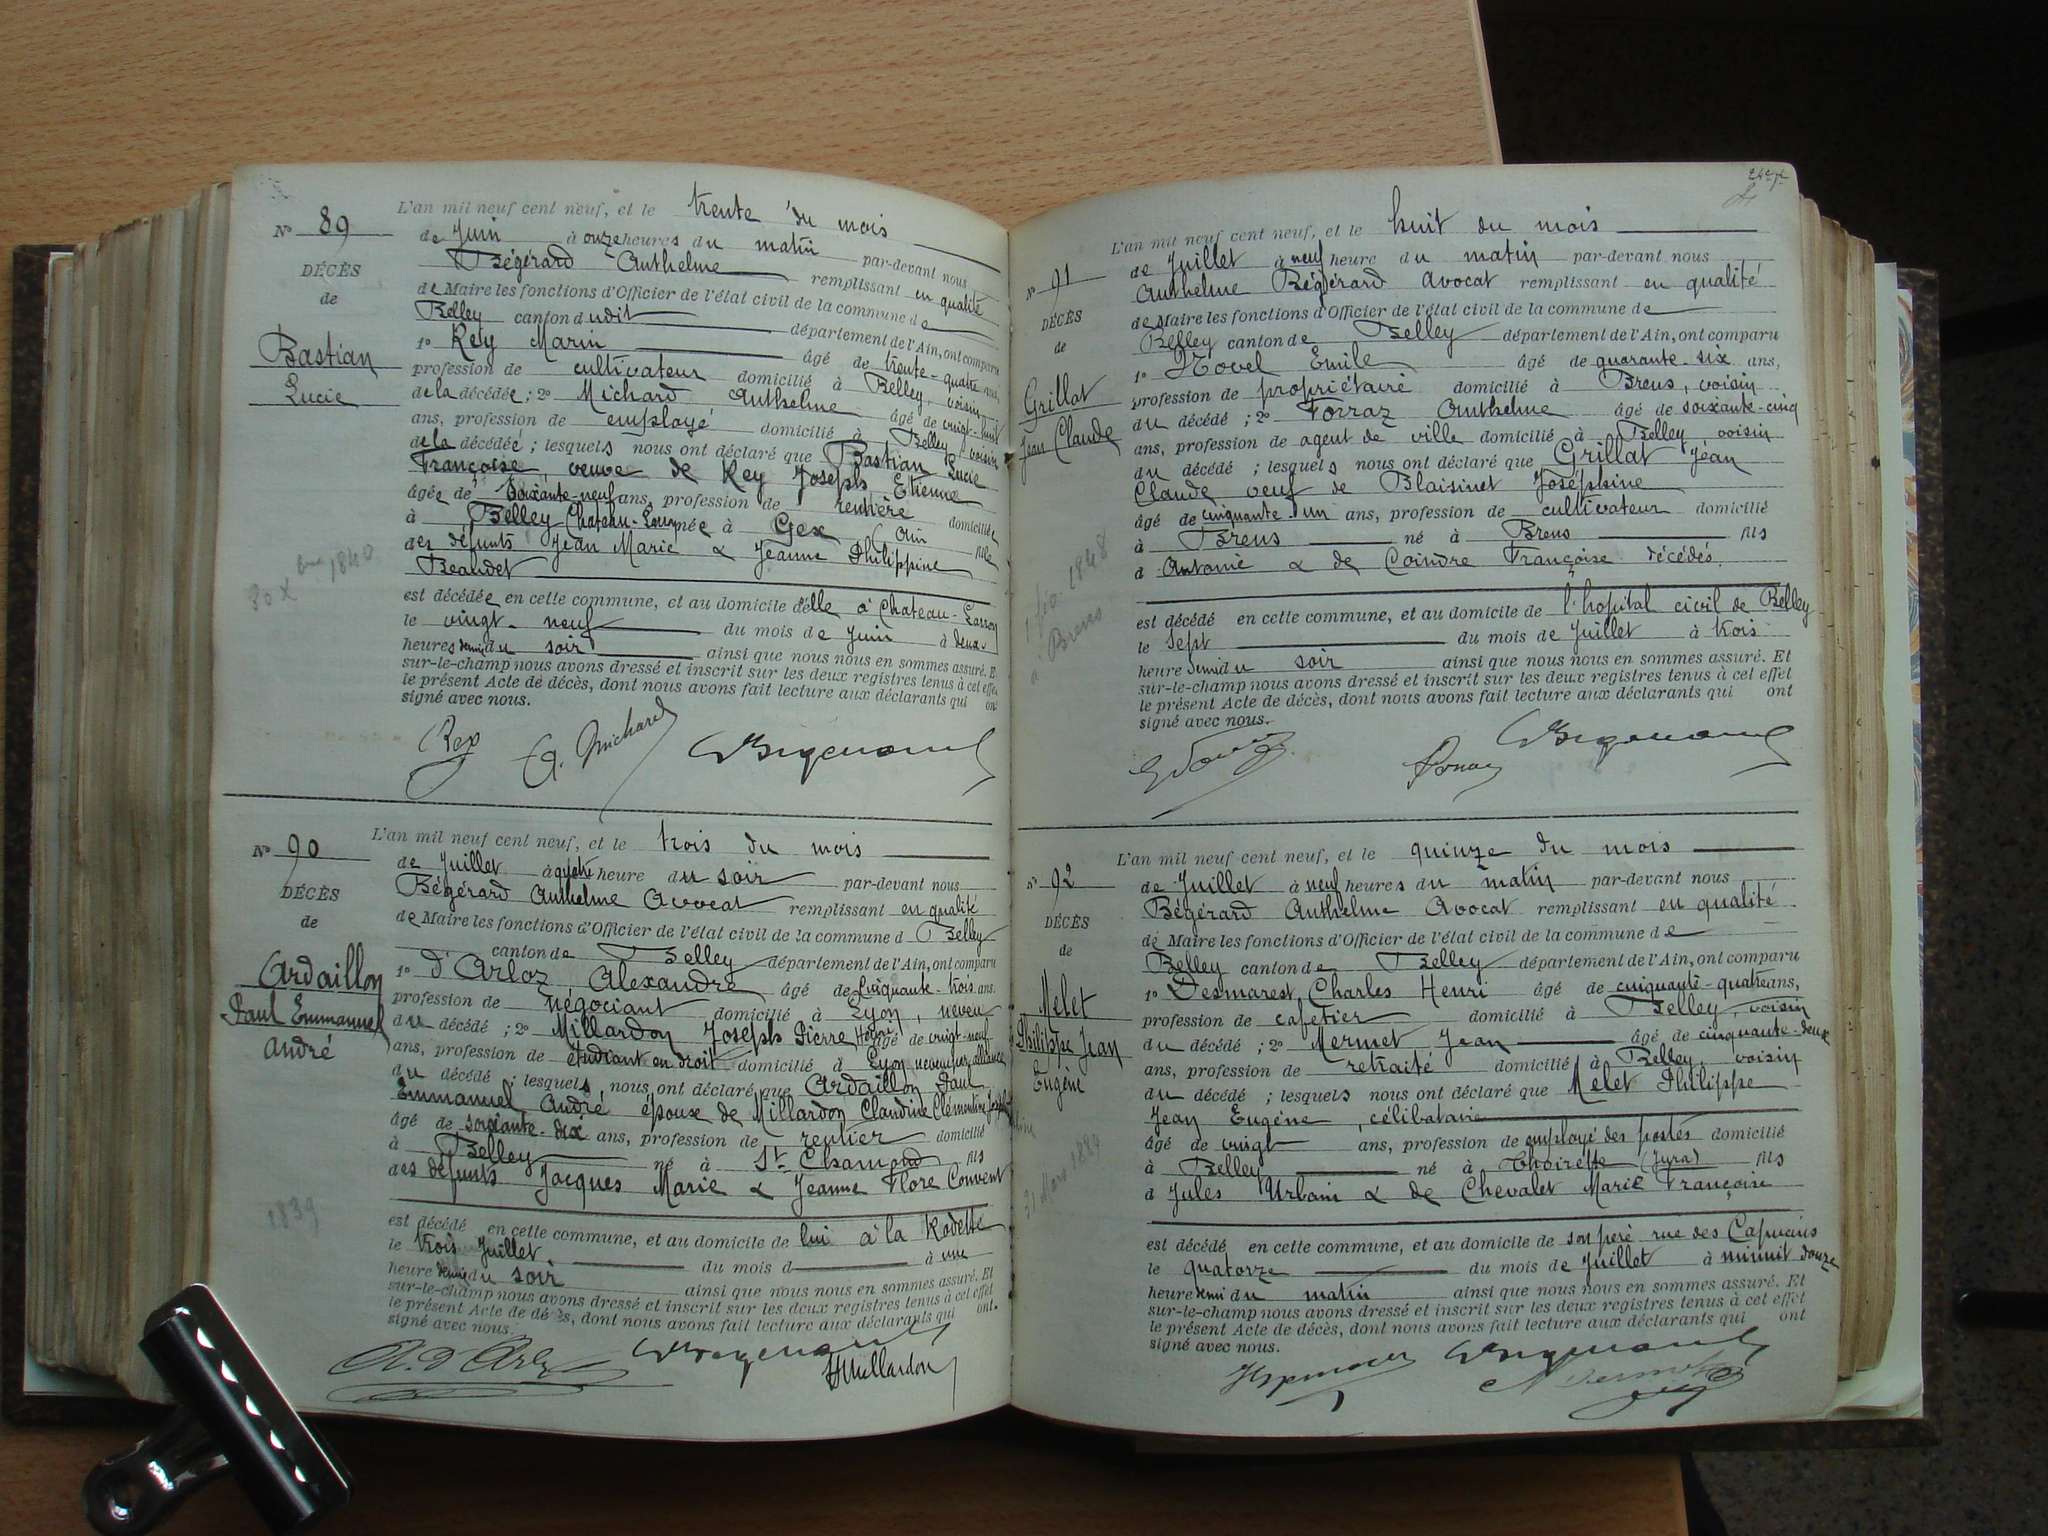 N° 89
DÉCÈS
de
Bastian
Lucie
30 Xbre 1840
L'an mil neuf cent neuf, et le trente du mois
de Juin à onze heures du matin par-devant nous
Bégérard Anthelme remplissant en qualité
de Maire les fonctions d'Officier de l'état civil de la commune de
Belley canton dudit département de l'Ain, ont comparu
1° Rey Marin âgé de trente-quatre ans,
profession de cultivateur domicilié à Belley, voisin
de la décédée; 2° Michard Anthelme âgé de vingt-huit
ans, profession de employé domicilié à Belley voisin
de la décédée; lesquels nous ont déclaré que Bastian Lucie
Françoise, veuve de Rey Joseph Etienne
âgée de soixante-neuf ans, profession de rentière domiciliée
à Belley Chateau- née à Gex (Ain fille
des défunts Jean Marie & Jeanne Philippine
Beaudet
est décédée en cette commune, et au domicile d'elle à Chateau-
le vingt-neuf du mois de Juin à deux
heures demi du soir ainsi que nous nous en sommes assuré. Et
sur-le-champ nous avons dressé et inscrit sur les deux registres tenus à cet effet
le présent Acte de décès, dont nous avons fait lecture aux déclarants qui ont
signé avec nous.
Rey A. Michard
N° 90
DÉCÈS
de
Ardaillon
Paul Emmanuel
André
1839
L'an mil neuf cent neuf, et le trois du mois
de Juillet à quatre heure du soir par-devant nous
Bégérard Anthelme Avocat remplissant en qualité
de Maire les fonctions d'Officier de l'état civil de la commune d Belley
canton de Belley département de l'Ain, ont comparu
1° d'Arloz Alexandre âgé de cinquante-trois ans
profession de négociant domicilié à Lyon, neveu
du décédé; 2° Millardon Joseph Pierre Henri âgé de vingt-neuf
ans, profession de étudiant en droit domicilié à Lyon neveu par alliance
du décédé; lesquels nous ont déclaré que Ardaillon Paul
Emmanuel André époux de Millardon Claudine Clémentine Joséphine
âgé de soixante-dix ans, profession de rentier domicilié
à Belley né à St Chamond fils
des défunts Jacques Marie & Jeanne Flore Convent
est décédé en cette commune, et au domicile de lui à la Rodette
le trois Juillet du mois d à une
heure demie du soir ainsi que nous nous en sommes assuré. Et
sur-le-champ nous avons dressé et inscrit sur les deux registres tenus à cet effet
le présent Acte de décès, dont nous avons fait lecture aux déclarants qui ont.
signé avec nous.
A. d'Arloz HMillardon
N° 91
DÉCÈS
de
Grillat
Jean Claude
fév. 1848
à Brens
L'an mil neuf cent neuf, et le huit du mois
de Juillet à neuf heure du matin par-devant nous
Anthelme Bégérard avocat remplissant en qualité
de Maire les fonctions d'Officier de l'état civil de la commune de
Belley canton de Belley département de l'Ain, ont comparu
1° Novel Emile âgé de quarante-six ans,
profession de propriétaire domicilié à Brens, voisin
du décédé; 2° Forraz Anthelme âgé de soixante-cinq
ans, profession de agent de ville domicilié à Belley voisin
du décédé; lesquels nous ont déclaré que Grillat Jean
Claude veuf de Blaisinet Joséphine
âgé de cinquante-un ans, profession de cultivateur domicilié
à Brens né à Brens fils
d Antoine & de Coindre Françoise décédés.
est décédé en cette commune, et au domicile de l'hopital civil de Belley
le sept du mois de Juillet à trois
heure demi du soir ainsi que nous nous en sommes assuré. Et
sur-le-champ nous avons dressé et inscrit sur les deux registres tenus à cet effet
le présent Acte de décès, dont nous avons fait lecture aux déclarants qui ont
signé avec nous.
N° 92
DÉCÈS
de
Melet
Philippe Jean
Eugène
31 Mars 1889
L'an mil neuf cent neuf, et le quinze du mois
de Juillet à neuf heures du matin par-devant nous
Bégérard Anthelme Avocat remplissant en qualité
de Maire les fonctions d'Officier de l'état civil de la commune de
Belley canton de Belley département de l'Ain, ont comparu
1° Desmarest Charles Henri âgé de cinquante-quatre ans,
profession de cafetier domicilié à Belley, voisin
du décédé; 2° Mermet Jean âgé de cinquante-deux
ans, profession de retraité domicilié à Belley, voisin
du décédé; lesquels nous ont déclaré que Melet Philippe
Jean Eugène, célibataire
âgé de vingt ans, profession de employé des postes domicilié
à Belley né à Thoirette (Jura) fils
d Jules Urbain & de Chevalet Marie Françoise
est décédé en cette commune, et au domicile de son père rue des Capucins
le quatorze du mois de Juillet à minuit douze
heure demi du matin ainsi que nous nous en sommes assuré. Et
sur-le-champ nous avons dressé et inscrit sur les deux registres tenus à cet effet
le présent Acte de décès, dont nous avons fait lecture aux déclarants qui ont
signé avec nous.